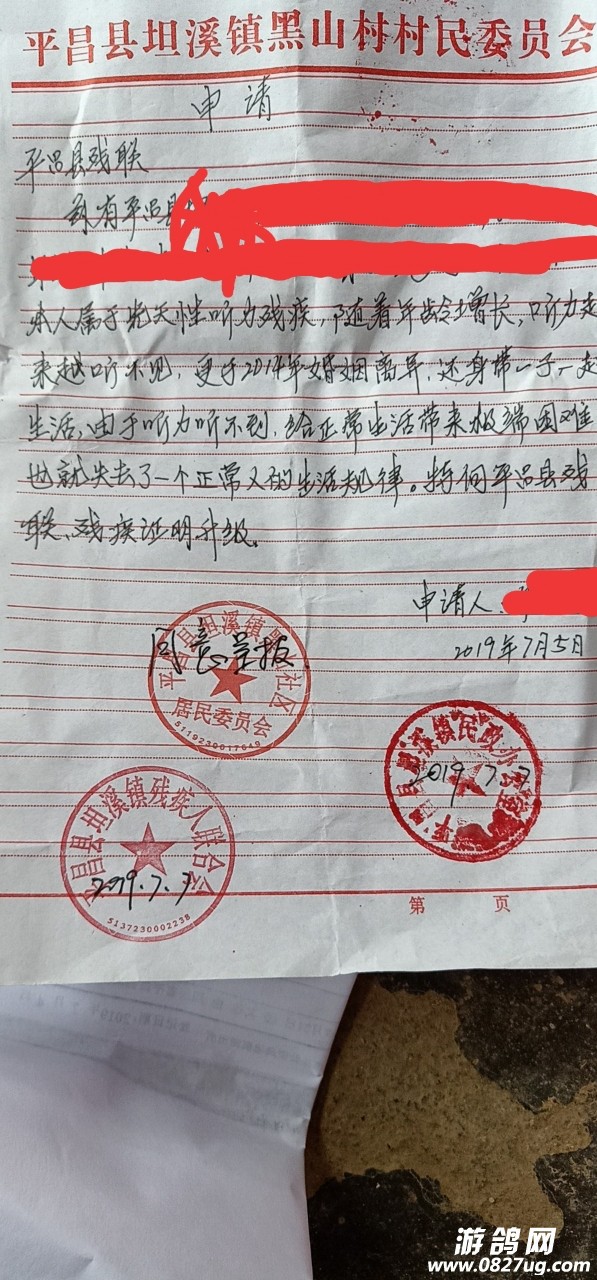 平昌县坦溪镇黑山村村民委员会
申请
平昌县残联
兹有平昌县
本人属于先天性听力残疾,随着年龄增长,听力越
来越听不见,更于2014年婚姻离异,还身带一子一起
生活,由于听力听不到,给正常生活带来极端困难
也就失去了一个正常人的生活规律。特向平昌县残
联、残疾证明升级。
申请人:
2019年7月5日
平昌县坦溪镇黑山社区
同意呈报
居民委员会
5119230017649
平昌县坦溪镇民政办公室
2019.7.7
平昌县坦溪镇残疾人联合会
2019.7.7
5137230002238
第 页
游鸽网
www.0827ug.com